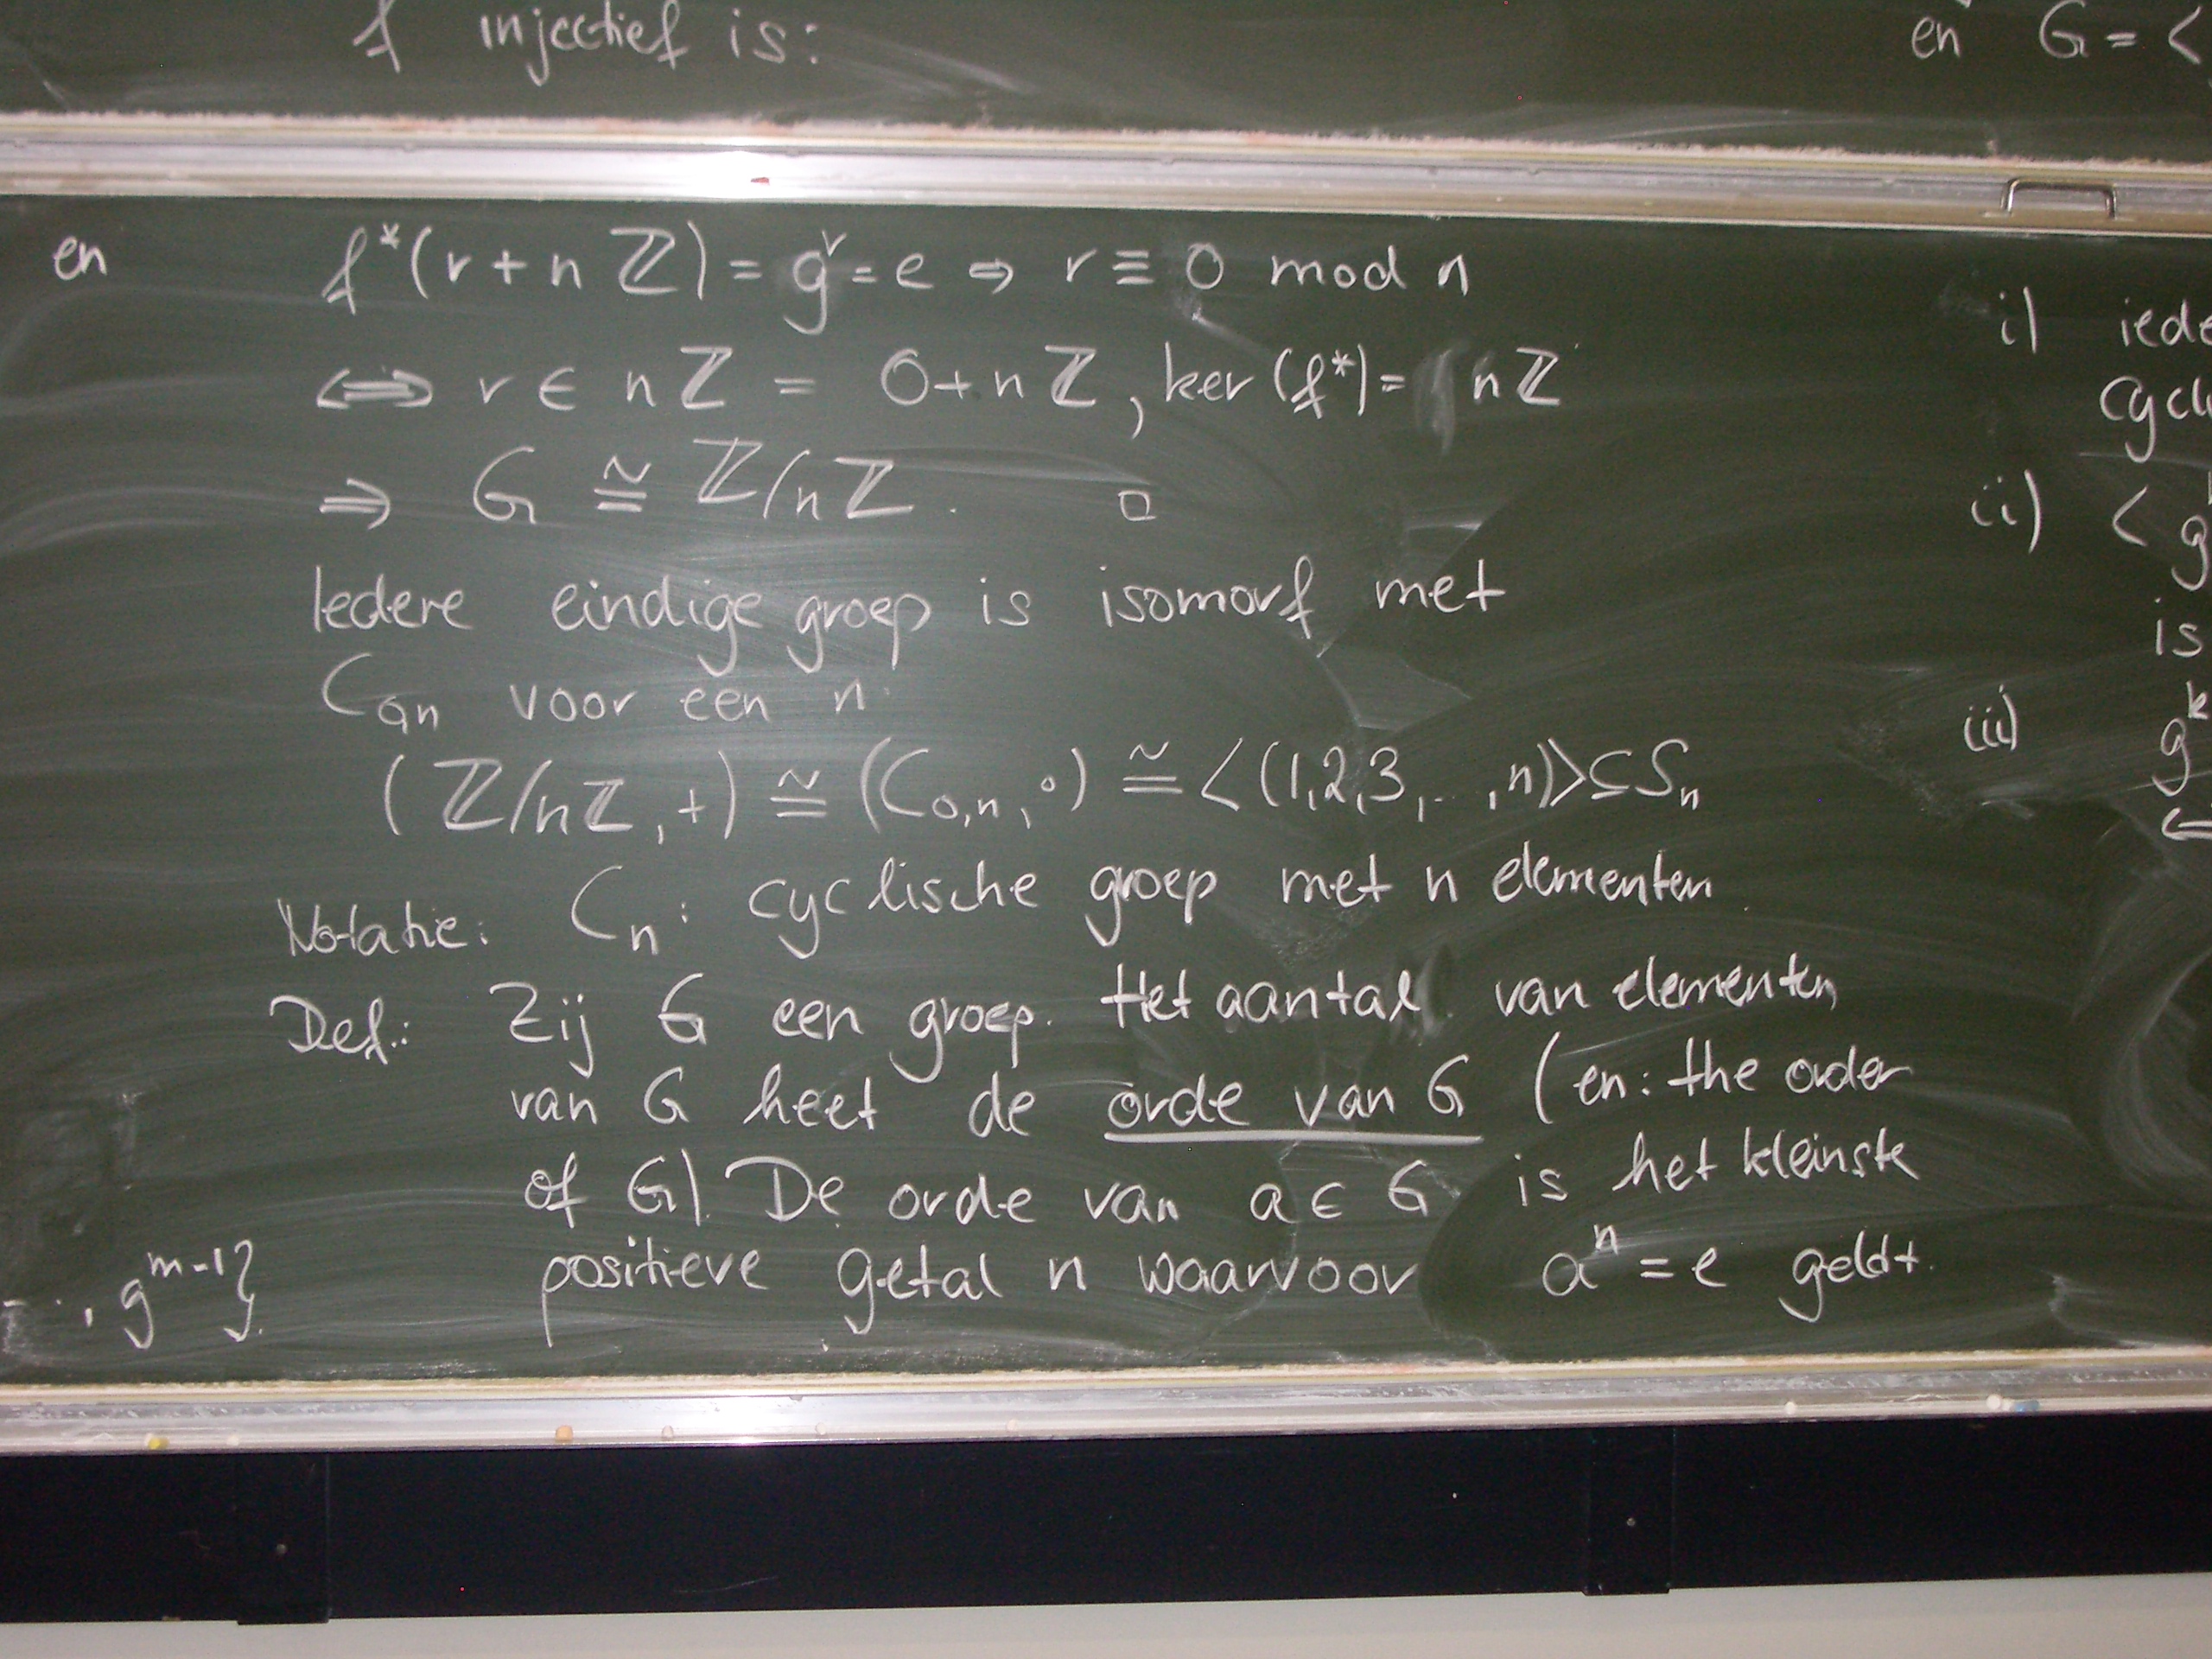 f injectief is:
en G = <
en f*(r + n ℤ) = g^r = e ⇒ r ≡ 0 mod n
⇔ r ∈ nℤ = 0 + nℤ, ker(f*) = nℤ
⇒ G ≅ ℤ/nℤ. □
Iedere eindige groep is isomorf met
voor een n
(ℤ/nℤ, +) ≅ (C_{0,n}, ∘) ≅ <(1,2,3,...,n)> ⊆ S_n
Notatie: C_n: cyclische groep met n elementen.
Def.: Zij G een groep. Het aantal van elementen
van G heet de orde van G (en: the order
of G). De orde van a ∈ G is het kleinste
positieve getal n waarvoor a^n = e geldt.
..., g^{m-1}}.
i) iede
cycl
ii) < g
is
iii) g^k
⇐